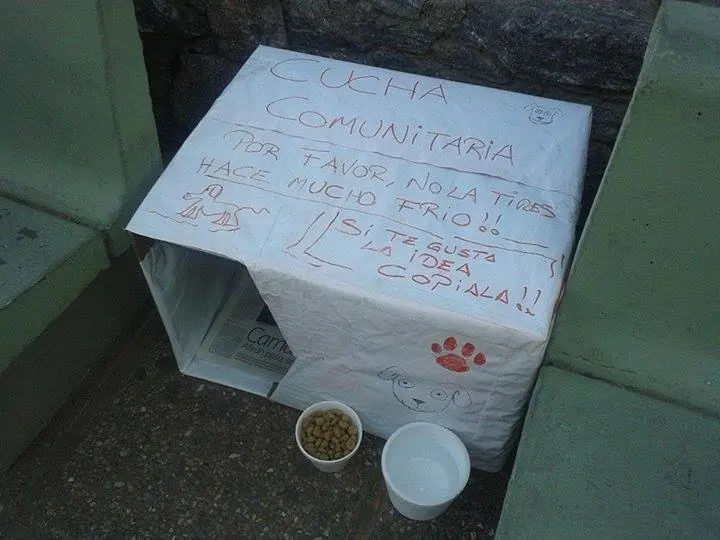 CUCHA
COMUNITARIA
POR FAVOR, NO LA TIRES
HACE MUCHO FRIO!!
SI TE GUSTA
LA IDEA
COPIALA!!